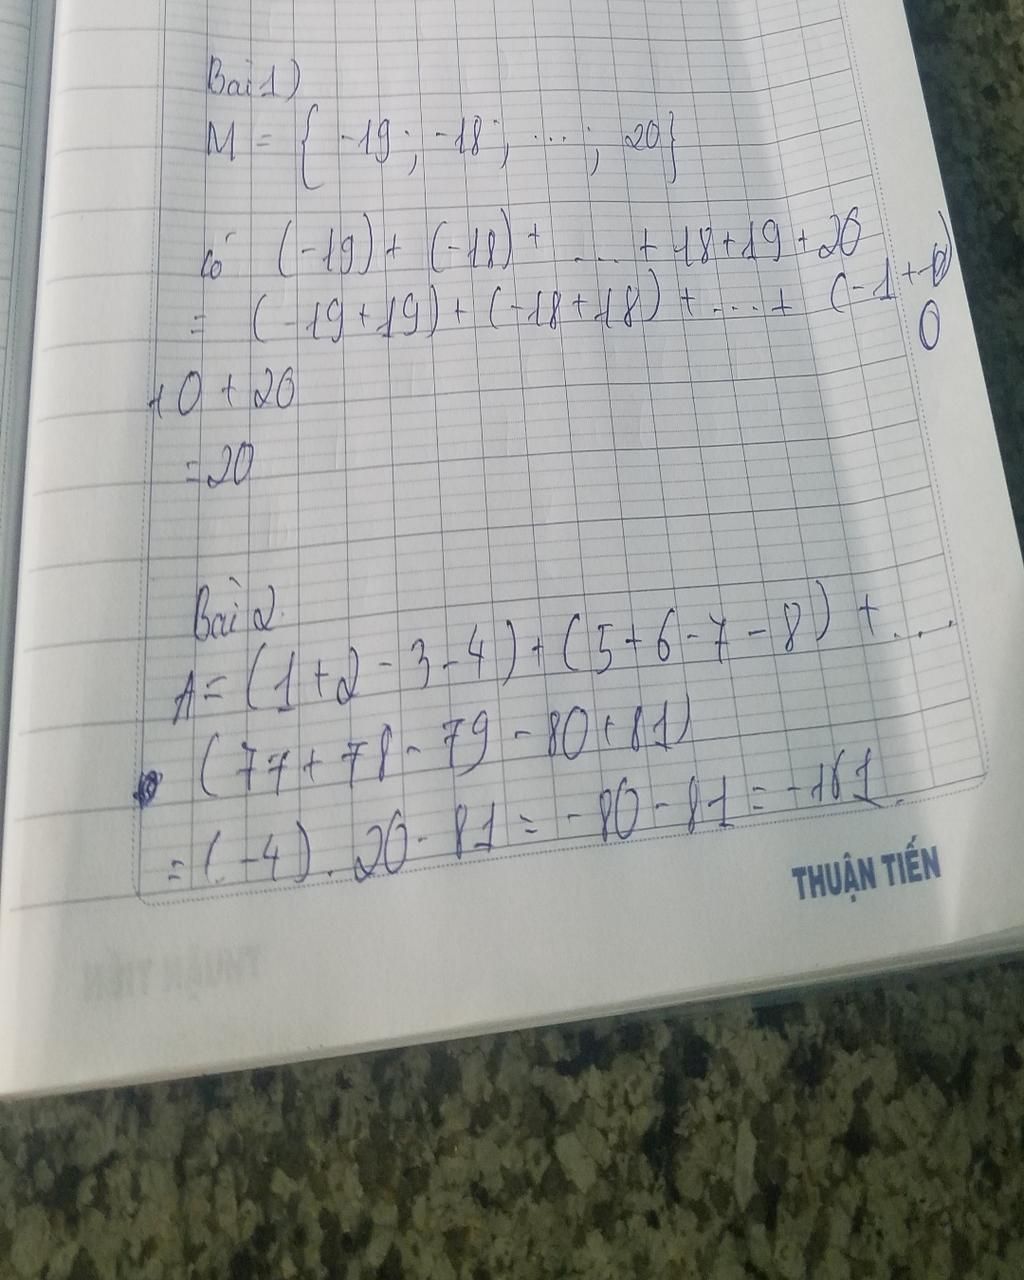 Bài 1)
M = { -19 ; -18 ; ... ; 20 }
có (-19) + (-18) + ... + 18 + 19 + 20
= (-19 + 19) + (-18 + 18) + ... + (-1 +
0
+ 0 + 20
= 20
Bài 2.
A = (1 + 2 - 3 - 4) + (5 + 6 - 7 - 8) + ...
(77 + 78 - 79 - 80 + 81)
= (-4) . 20 - 81 = -80 - 81 = -161.
THUẬN TIẾN